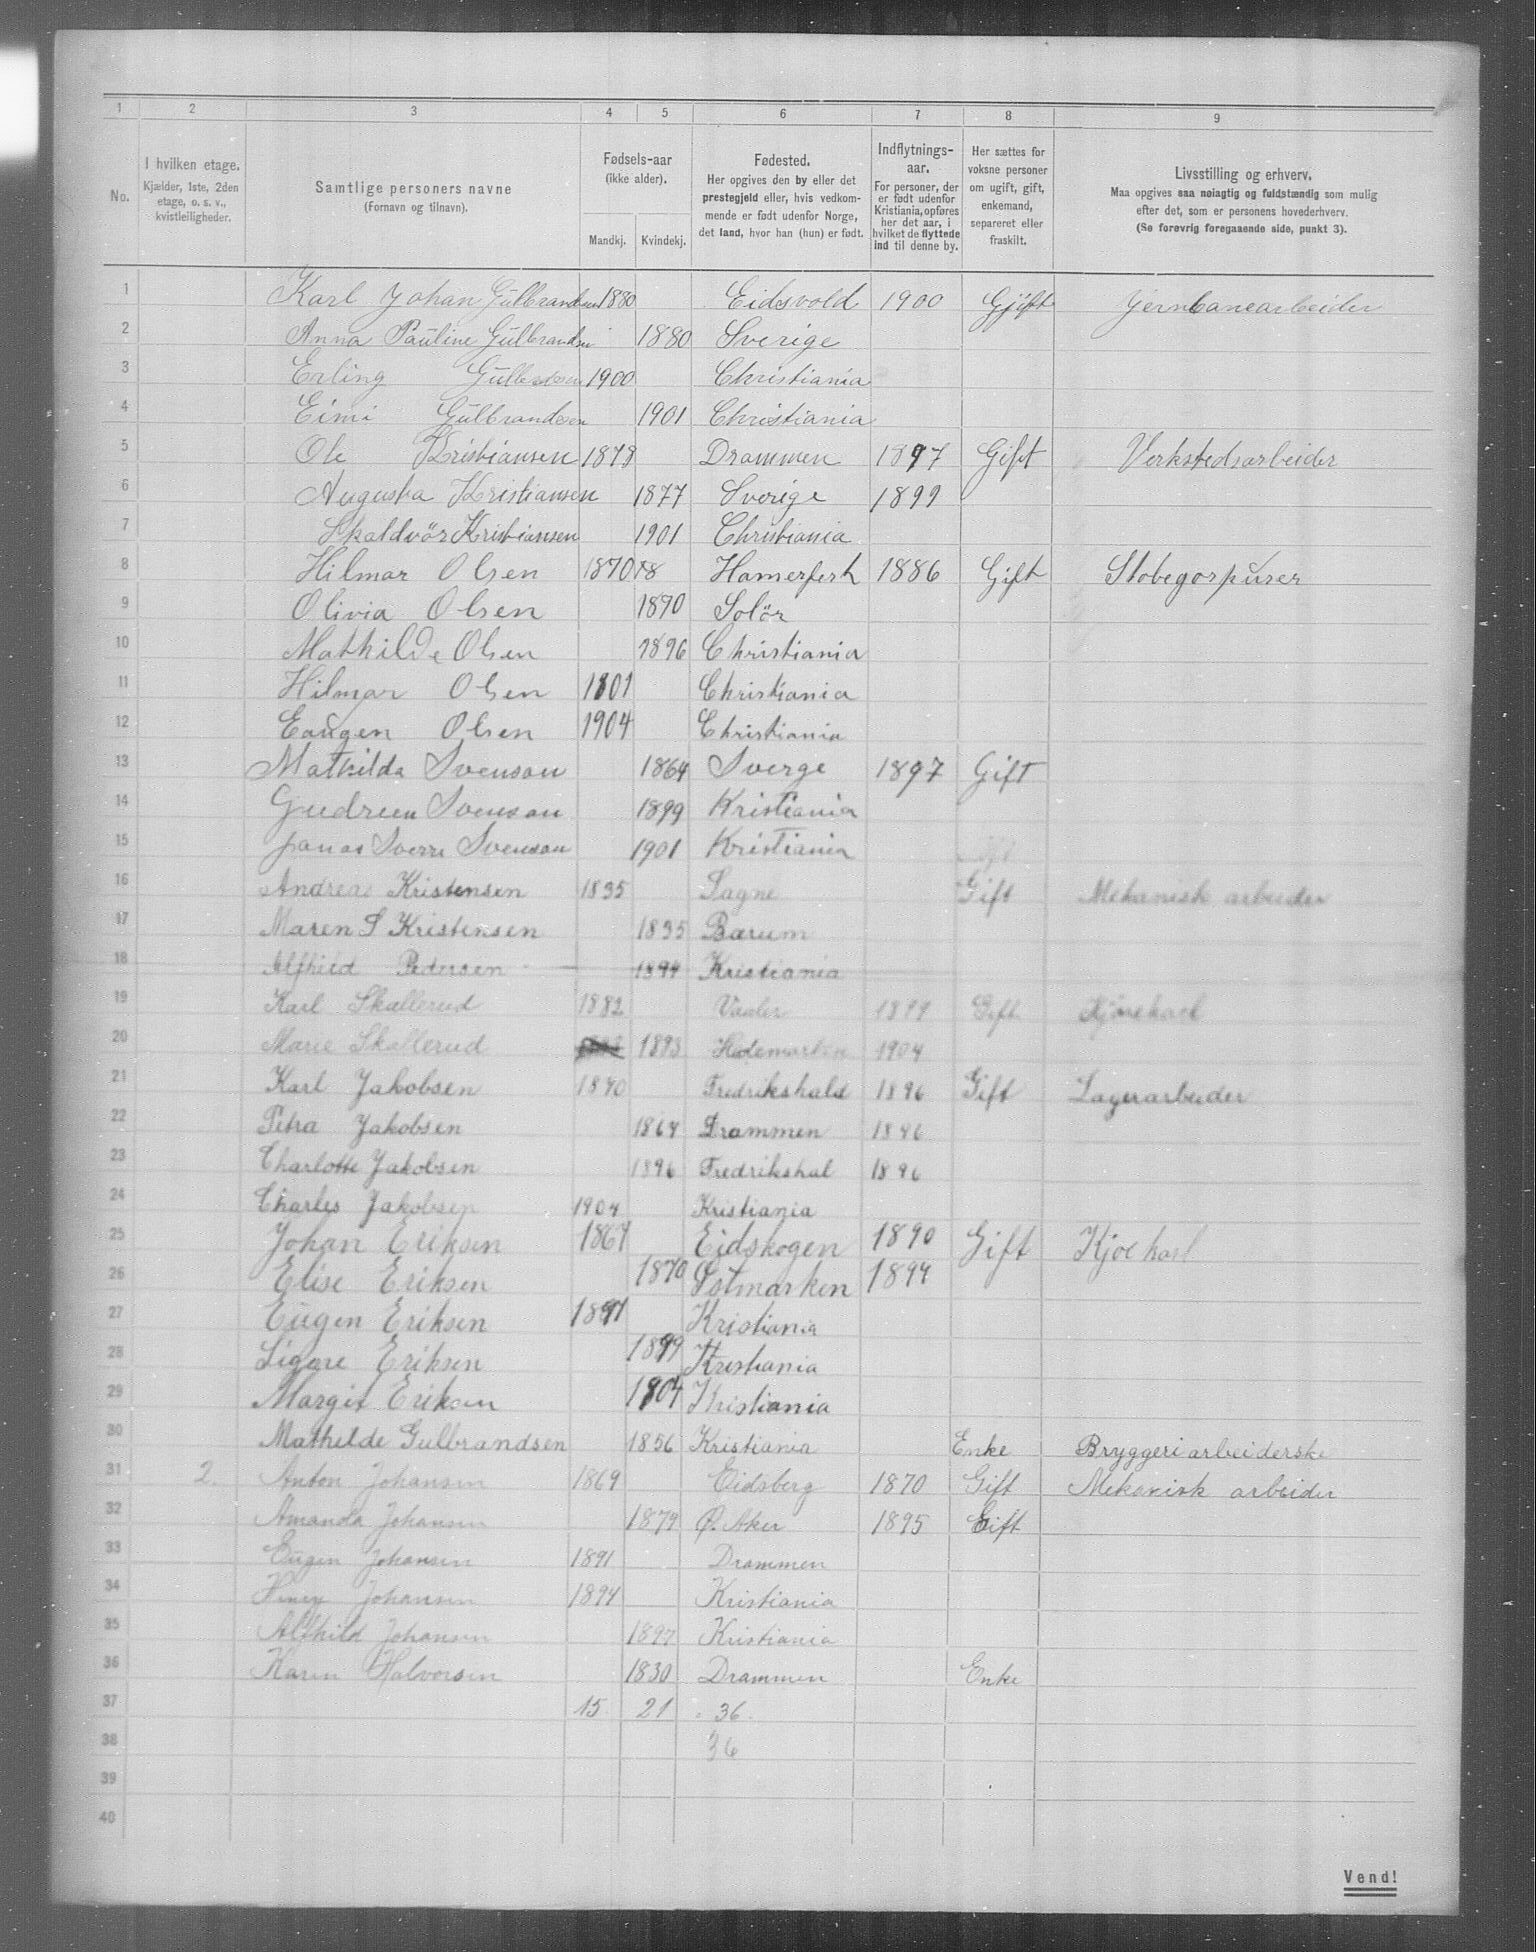 1 2 3 4 5 6 7 8 9
No. I hvilken etage. Kjælder, 1ste, 2den etage, o. s. v., kvistleiligheder. Samtlige personers navne (Fornavn og tilnavn). Fødsels-aar (ikke alder). Mandkj. Kvindekj. Fødested. Her opgives den by eller det prestegjeld eller, hvis vedkommende er født udenfor Norge, det land, hvor han (hun) er født. Indflytnings-aar. For personer, der er født udenfor Kristiania, opføres her det aar, i hvilket de flyttede ind til denne by. Her sættes for voksne personer om ugift, gift, enkemand, separeret eller fraskilt. Livsstilling og erhverv. Maa opgives saa nøiagtig og fuldstændig som mulig efter det, som er personens hovederhverv. (Se forøvrig foregaaende side, punkt 3).
1 Karl Johan Gülbrandsen 1880 Eidsvold 1900 Gjift Jernbanearbeider
2 Anna Pauline Gülbrandsen 1880 Sverige
3 Erling 1900 Christiania
4 Eimi Gülbrandsen 1901 Christiania
5 Ole Kristiansen 1878 Drammen 1897 Gift Verkstedsarbeider
6 Augusta Kristiansen 1877 Sverige 1899
7 Skaldvör Kristiansen 1901 Christiania
8 Hilmar Olsen 1870 Hamerfest 1886 Gift Stobegorpuser
9 Olivia Olsen 1870 Solör
10 Mathilde Olsen 1896 Christiania
11 Hilmar Olsen 1901 Christiania
12 Eaugen Olsen 1904 Christiania
13 Mathilda Svenson 1864 Sverge 1897 Gift
14 Gudrun Svenson 1899 Kristiania
15 Jonas Sverre Svenson 1901 Kristiania
16 Andreas Kristensen 1835 Sagne Gift Mekanisk arbeider
17 Maren S Kristensen 1835 Bærum
18 Alfhild Pedersen 1894 Kristiania
19 Karl Skallerud 1882 Vaaler 1899 Gift Kjørekarl
20 Marie Skallerud 1883 Hedemarken 1904
21 Karl Jakobsen 1870 Fredrikshald 1896 Gift Lagerarbeider
22 Petra Jakobsen 1864 Drammen 1896
23 Charlotte Jakobsen 1896 Fredrikshal 1896
24 Charles Jakobsen 1904 Kristiania
25 Johan Eriksen 1867 Eidskogen 1890 Gift Kjoekarl
26 Elise Eriksen 1870 Østmarken 1894
27 Eugen Eriksen 1897 Kristiania
28 Signe Eriksen 1899 Kristiania
29 Margit Eriksen 1904 Kristiania
30 Mathilde Gulbrandsen 1856 Kristiania Enke Bryggeriarbeiderske
31 2. Anton Johansen 1869 Eidsberg 1870 Gift Mekanisk arbeider
32 Amanda Johansen 1879 Ø. Aker 1895 Gift
33 Eugen Johansen 1891 Drammen
34 Henry Johansen 1894 Kristiania
35 Alfhild Johansen 1897 Kristiania
36 Karen Halvorsen 1830 Drammen Enke
37 15 21 36.
38 36
39
40
Vend!